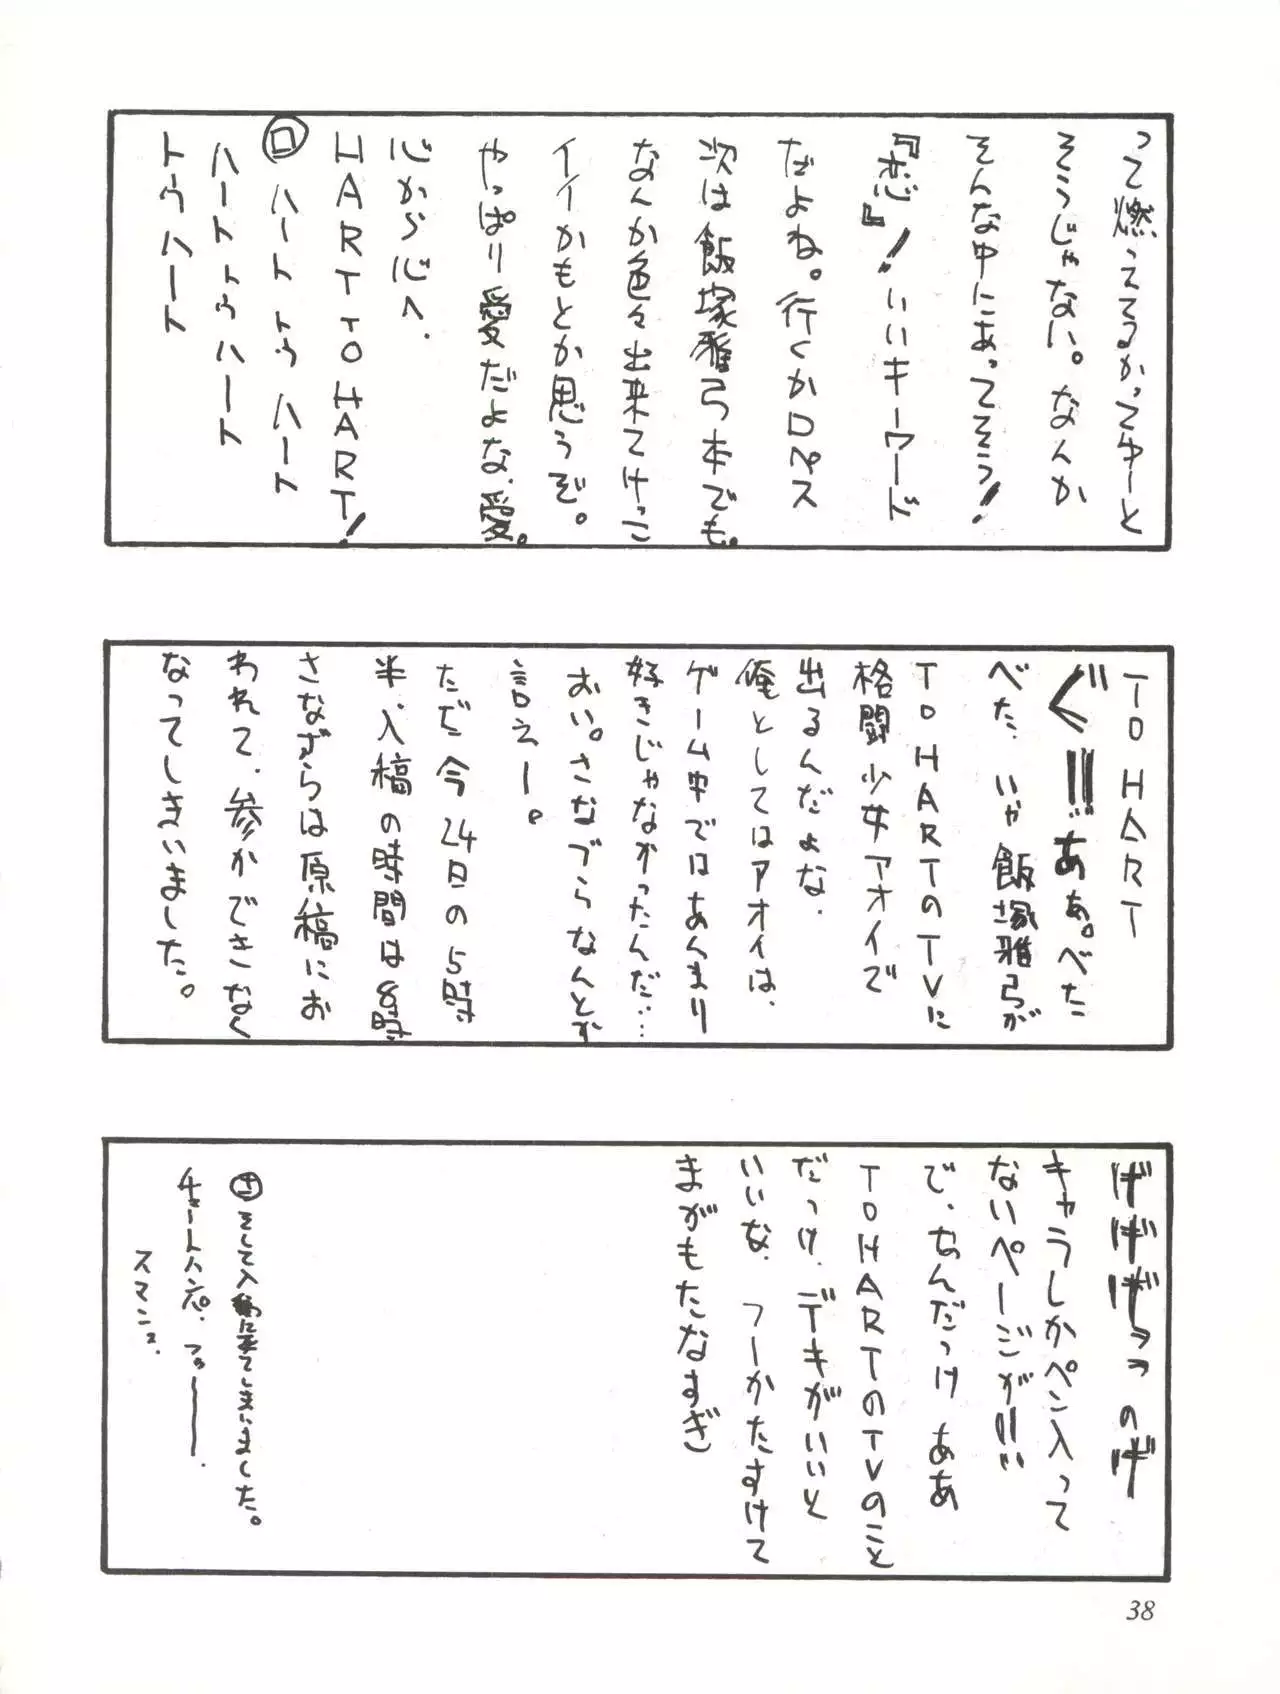 って燃えてるかってゆーと
そうじゃない。なんか
そんな中にあってそう!
『恋』! いいキーワード
だよね。行くかロペス
次は飯塚雅弓本でも。
なんか色々出来てけっこ
イイかもとか思うぞ。
やっぱり愛だよな、愛。
心から心へ.
HART TO HART!
ロ ハート トゥ ハート
ハート トゥ ハート
トゥ ハート
TO HART
ぐ!!! ああ。べた
べた. いや飯塚雅弓が
TO HARTのTVに
格闘少女アオイで
出るんだよな.
俺としてはアオイは、
ゲーム中ではあんまり
好きじゃなかったんだ……
おい。さなづらなんとか
言えー。
ただ今24日の5時
半、入稿の時間は8時
さなずらは原稿にお
われて、参かできなく
なってしまいました。
げげげっっのげ
キャラしかペン入って
ないページが!!!
で、なんだっけ ああ
TO HARTのTVのこと
だっけ. デキがいいと
いいな. つーかたすけて
まがもたなすぎ
サ そして入稿に来てしまいました。
チョートハンパ. フゥーーー.
スマンヌ.
38